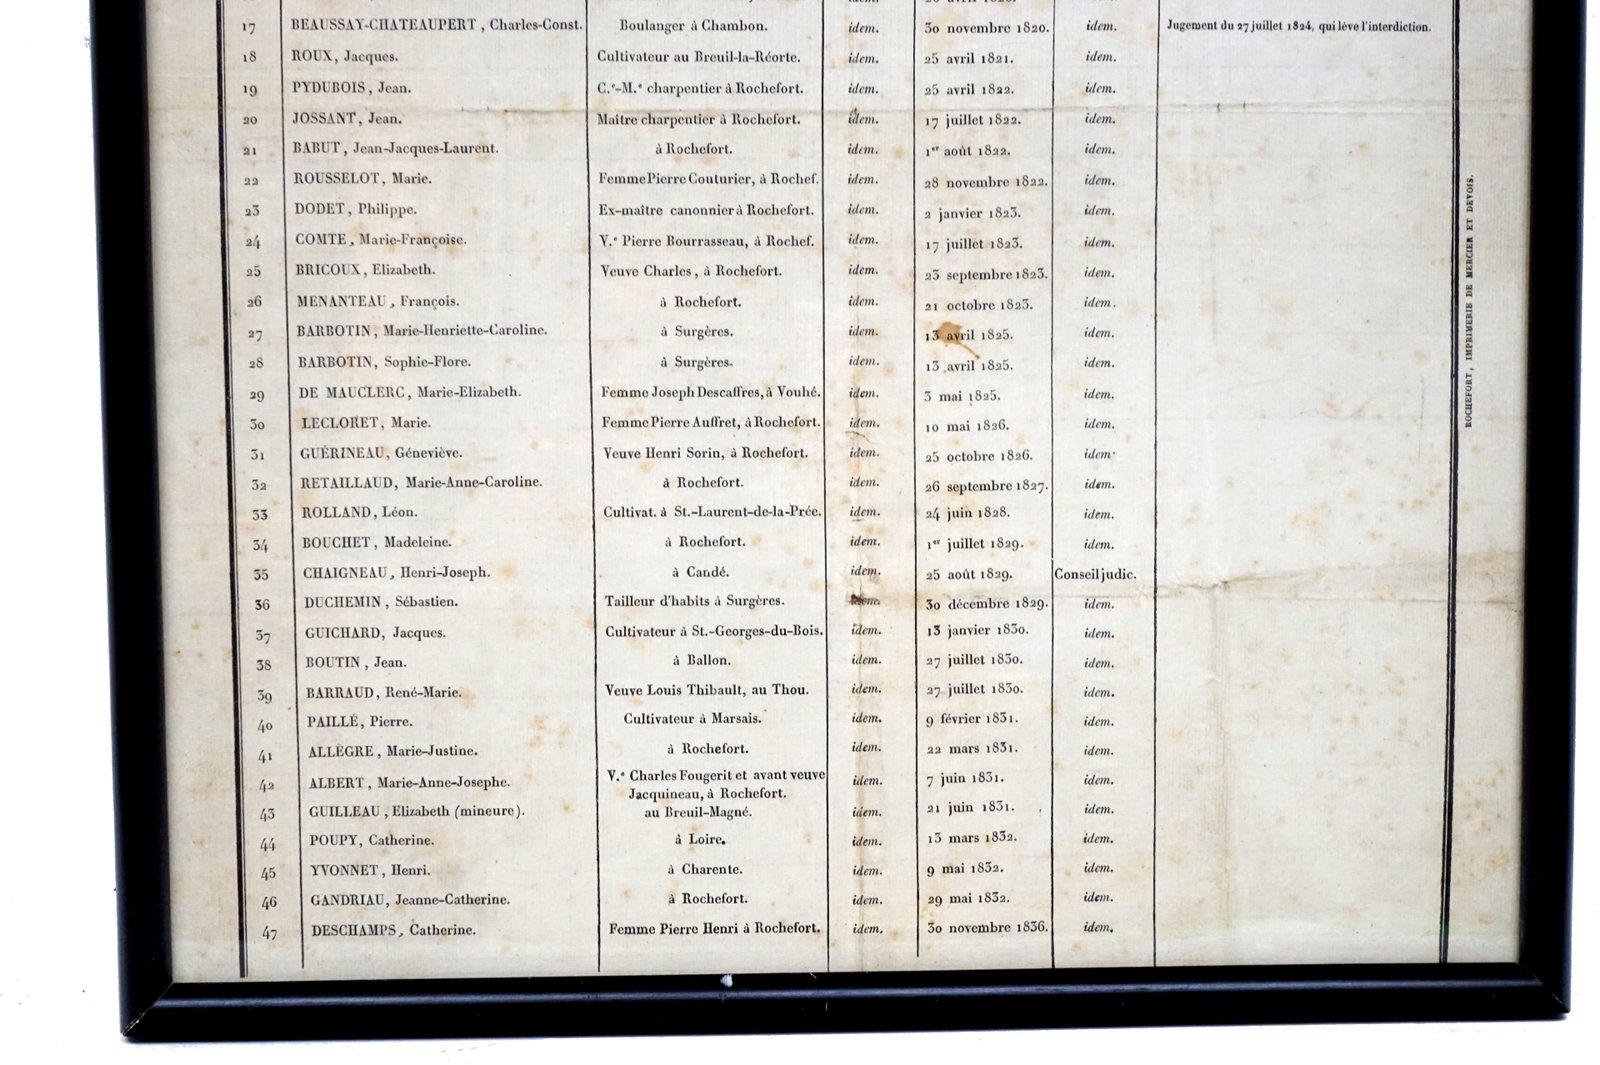 17 BEAUSSAY-CHATEAUPERT, Charles-Const. Boulanger à Chambon. idem. 30 novembre 1820. idem. Jugement du 27 juillet 1824, qui lève l'interdiction.
18 ROUX, Jacques. Cultivateur au Breuil-la-Réorte. idem. 25 avril 1821. idem.
19 PYDUBOIS, Jean. C.e-M.e charpentier à Rochefort. idem. 25 avril 1822. idem.
20 JOSSANT, Jean. Maître charpentier à Rochefort. idem. 17 juillet 1822. idem.
21 BABUT, Jean-Jacques-Laurent. à Rochefort. idem. 1er août 1822. idem.
22 ROUSSELOT, Marie. Femme Pierre Couturier, à Rochef. idem. 28 novembre 1822. idem.
23 DODET, Philippe. Ex-maître canonnier à Rochefort. idem. 2 janvier 1823. idem.
24 COMTE, Marie-Françoise. V.e Pierre Bourrasseau, à Rochef. idem. 17 juillet 1823. idem.
25 BRICOUX, Elizabeth. Veuve Charles, à Rochefort. idem. 23 septembre 1823. idem.
26 MENANTEAU, François. à Rochefort. idem. 21 octobre 1823. idem.
27 BARBOTIN, Marie-Henriette-Caroline. à Surgères. idem. 13 avril 1825. idem.
28 BARBOTIN, Sophie-Flore. à Surgères. idem. 13 avril 1825. idem.
29 DE MAUCLERC, Marie-Elizabeth. Femme Joseph Descaffres, à Vouhé. idem. 3 mai 1825. idem.
30 LECLORET, Marie. Femme Pierre Auffret, à Rochefort. idem. 10 mai 1826. idem.
31 GUÉRINEAU, Géneviève. Veuve Henri Sorin, à Rochefort. idem. 25 octobre 1826. idem.
32 RETAILLAUD, Marie-Anne-Caroline. à Rochefort. idem. 26 septembre 1827. idem.
33 ROLLAND, Léon. Cultivat. à St.-Laurent-de-la-Prée. idem. 24 juin 1828. idem.
34 BOUCHET, Madeleine. à Rochefort. idem. 1er juillet 1829. idem.
35 CHAIGNEAU, Henri-Joseph. à Candé. idem. 25 août 1829. Conseil judic.
36 DUCHEMIN, Sébastien. Tailleur d'habits à Surgères. idem. 30 décembre 1829. idem.
37 GUICHARD, Jacques. Cultivateur à St.-Georges-du-Bois. idem. 13 janvier 1830. idem.
38 BOUTIN, Jean. à Ballon. idem. 27 juillet 1830. idem.
39 BARRAUD, René-Marie. Veuve Louis Thibault, au Thou. idem. 27 juillet 1830. idem.
40 PAILLÉ, Pierre. Cultivateur à Marsais. idem. 9 février 1831. idem.
41 ALLÈGRE, Marie-Justine. à Rochefort. idem. 22 mars 1831. idem.
42 ALBERT, Marie-Anne-Josephe. V.e Charles Fougerit et avant veuve idem. 7 juin 1831. idem.
Jacquineau, à Rochefort.
43 GUILLEAU, Elizabeth (mineure). au Breuil-Magné. idem. 21 juin 1831. idem.
44 POUPY, Catherine. à Loire. idem. 13 mars 1832. idem.
45 YVONNET, Henri. à Charente. idem. 9 mai 1832. idem.
46 GANDRIAU, Jeanne-Catherine. à Rochefort. idem. 29 mai 1832. idem.
47 DESCHAMPS, Catherine. Femme Pierre Henri à Rochefort. idem. 30 novembre 1836. idem.
ROCHEFORT, IMPRIMERIE DE MERCIER ET DEVOIS.